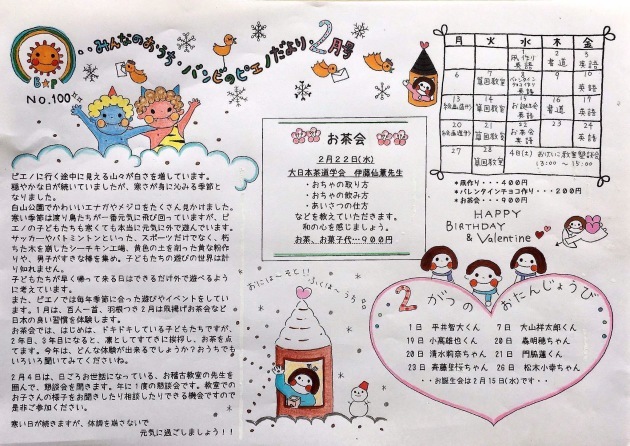 みんなのおうち・バンビのピエノだより2月号
BMP
No.100
ピエノに行く途中に見える山々が白さを増しています。
穏やかな日が続いていましたが、寒さが身に沁みる季節と
なりました。
白山公園でかわいいエナガやメジロをたくさん見かけました。
寒い季節は渡り鳥たちが一番元気に飛び回っていますが、ピ
エノの子どもたちも寒くても本当に元気に外で遊んでいます。
サッカーやバトミントンといった、スポーツだけでなく、朽
ちた木を潰したシーチキン工場、黄色の土を削った黄な粉作
りや、男子がすきな棒を集め。子どもたちの遊びの世界は計
り知れません。
子どもたちが早く帰って来る日はできるだけ外で遊べるよう
に考えています。
また、ピエノでは毎年季節に合った遊びやイベントをしてい
ます。1月は、百人一首、羽根つき2月は凧揚げお茶会など
日本の良い習慣を体験します。
お茶会では、はじめは、ドキドキしている子どもたちですが、
2年目、3年目になると、凛としてすてきに挨拶し、お茶を点
てます。今年は、どんな体験が出来るでしょうか？おうちでも
いろいろ聞いてみてくださいね。
2月4日は、日ごろお世話になっている、お稽古教室の先生を
囲んで、懇談会を開きます。年に1度の懇談会です。教室での
お子さんの様子をお聞きしたり相談したりできる機会ですので
是非ご参加ください。
寒い日が続きますが、体調を崩さないで
元気に過ごしましょう！！
お茶会
2月22日(水)
大日本茶道学会 伊藤仙薫先生
・おちゃの取り方
・おちゃの飲み方
・あいさつの仕方
などを教えていただきます。
和の心を感じましょう。
お茶、お菓子代…900円
おには～そと!!
ふくは～うち
月 火 水 木 金
1 凧作り 英語 2 書道 3 英語
6 7 算囲教室 8 バレンタインチョコ作り 英語 9 10 英語
13 14 算囲教室 15 お誕生会 英語 16 書道 17 英語
20 21 算囲教室 22 お茶会 英語 23 24 英語
27 28 算囲教室 4日(土) おけいこ教室懇談会
13:00 ～ 15:00
*凧作り・・・400円
*バレンタインチョコ作り・・・200円
*お茶会・・・900円
HAPPY
BIRTHDAY
& Valentine
2がつのおたんじょうび
1日 平井智大くん 7日 大山祥太郎くん
19日 小高雄也くん 20日 森明穂ちゃん
20日 清水莉奈ちゃん 21日 門脇蓮くん
23日 斉藤里行ちゃん 26日 松木小幸ちゃん
・・お誕生会は2月15日(水)です・・